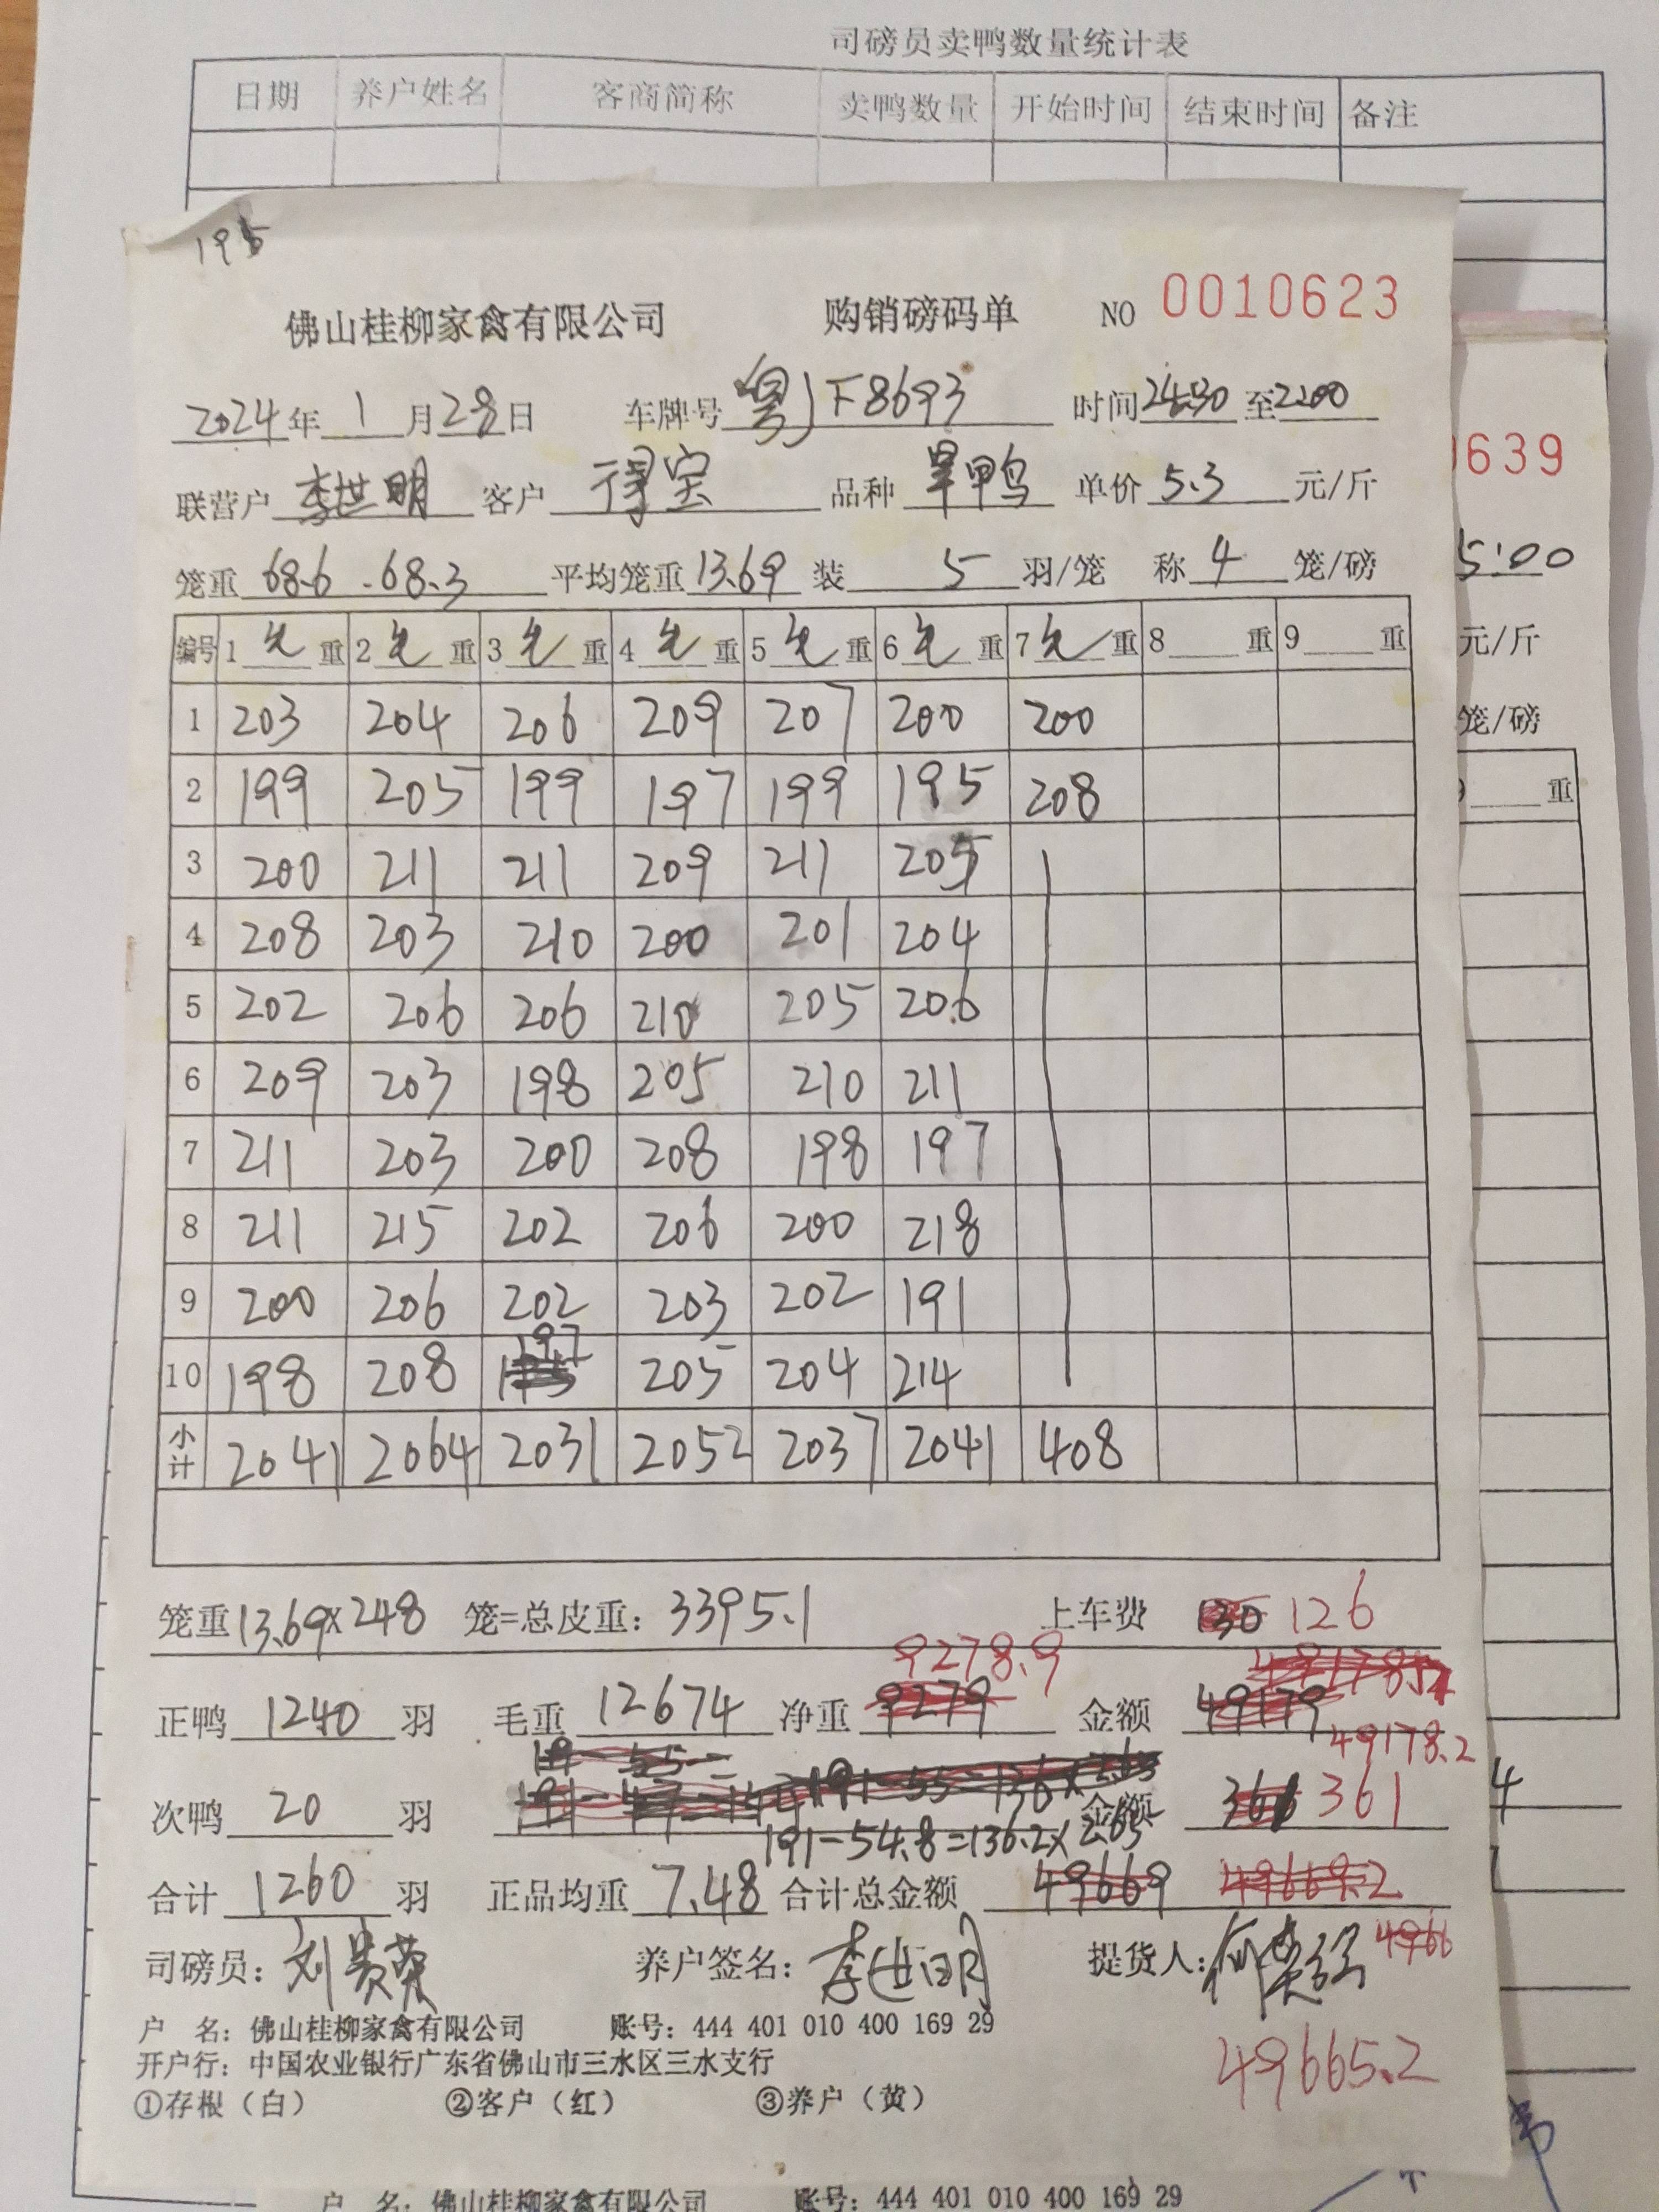 司磅员卖鸭数量统计表
日期 养户姓名 客商简称 卖鸭数量 开始时间 结束时间 备注
195
佛山桂柳家禽有限公司 购销磅码单 NO 0010623
2024年1月28日 车牌号 粤JF8693 时间 至2200
联营户 李世明 客户 得宝 品种 旱鸭 单价 5.3 元/斤
笼重 68.6 .68.3 平均笼重 13.69 装 5 羽/笼 称 4 笼/磅
编号 1 毛 重 2 毛 重 3 毛 重 4 毛 重 5 毛 重 6 毛 重 7 毛 重 8 重 9 重
1 203 204 206 209 207 200 200
2 199 205 199 197 199 195 208
3 200 211 211 209 211 205
4 208 203 210 200 201 204
5 202 206 206 210 205 206
6 209 203 198 205 210 211
7 211 203 200 208 198 197
8 211 215 202 206 200 218
9 200 206 202 203 202 191
10 198 208 197 205 204 214
小计 2041 2064 2031 2052 2037 2041 408
笼重 13.69×248 笼=总皮重: 3395.1 上车费 130 126
9278.9
正鸭 1240 羽 毛重 12674 净重 9279 金额 49179
49178.2
次鸭 20 羽 金额 361
191-54.8=136.2×2.65
合计 1260 羽 正品均重 7.48 合计总金额 49669 49669.2
司磅员: 刘贵葵 养户签名: 李世明 提货人: 4966
户 名: 佛山桂柳家禽有限公司 账号: 444 401 010 400 169 29
开户行: 中国农业银行广东省佛山市三水区三水支行
49665.2
①存根(白) ②客户(红) ③养户(黄)
户 名: 佛山桂柳家禽有限公司 账号: 444 401 010 400 169 29
0639
5:00
元/斤
笼/磅
9 重
4